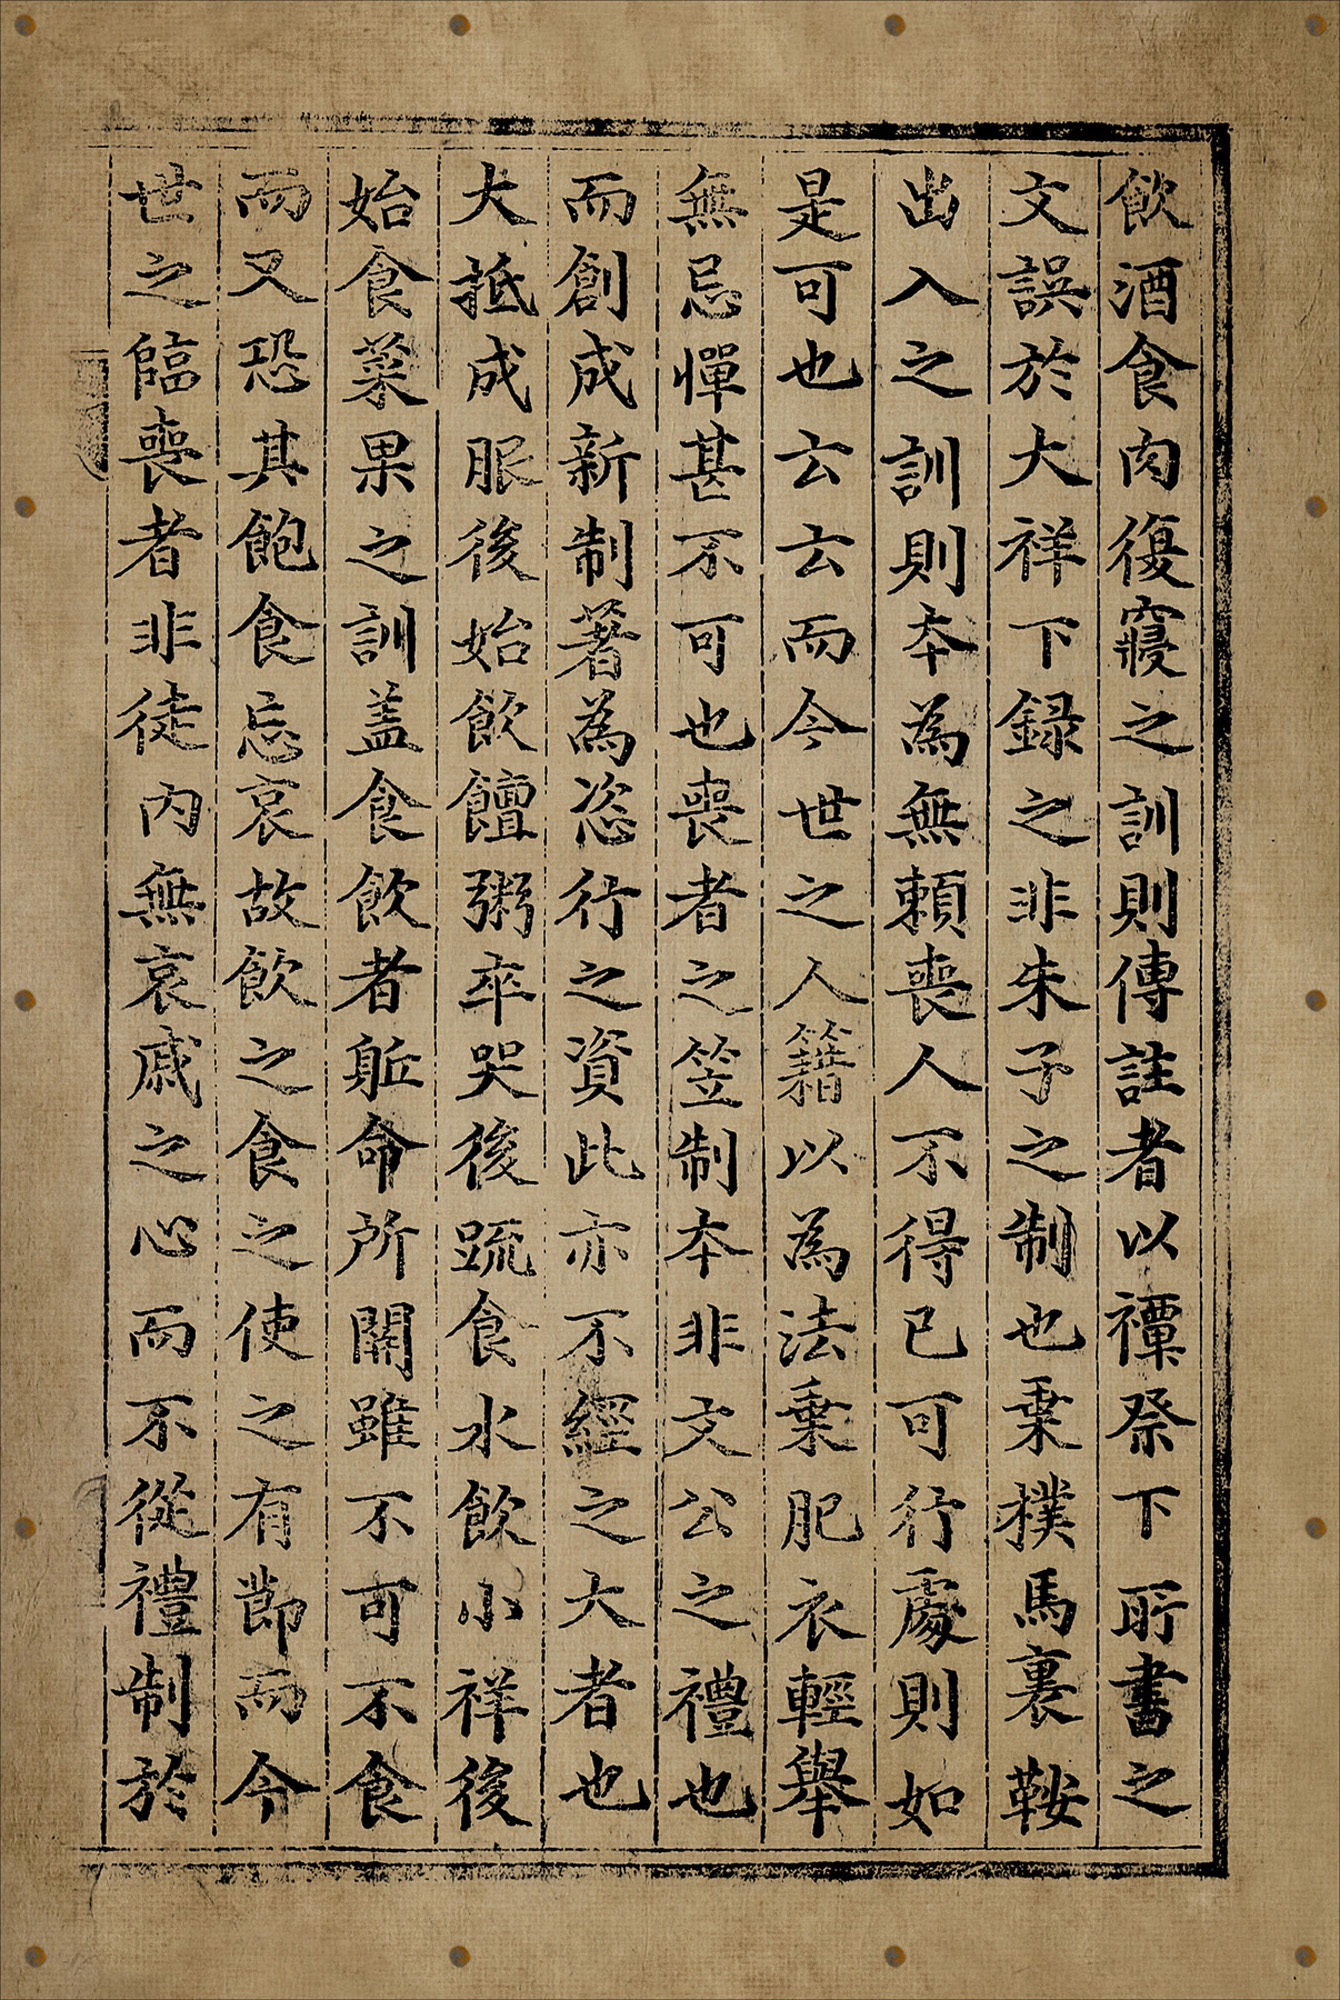 飲酒食肉復寢之訓則傳註者以禫祭下所書之
文誤於大祥下録之非朱子之制也乗樸馬裹鞍
出入之訓則本為無頼喪人不得已可行處則如
是可也云云而今世之人籍以為法乗肥衣輕舉
無忌憚甚不可也喪者之笠制本非文公之禮也
而創成新制著為恣行之資此亦不經之大者也
大抵成服後始飲饘粥卒哭後䟽食水飲小祥後
始食菜果之訓盖食飲者軀命所關雖不可不食
而又恐其飽食忘哀故飲之食之使之有莭而今
世之臨喪者非徒内無哀戚之心而不從禮制於